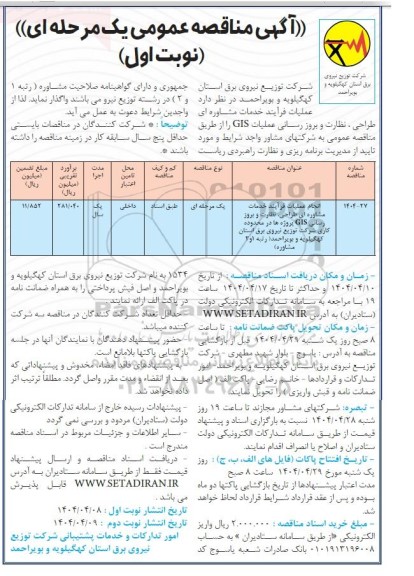 ((آگهی مناقصه عمومی یک مرحله ای))
(نوبت اول)
شرکت توزیع نیروی
برق استان کهگیلویه و
بویراحمد
شرکت توزیع نیروی برق استان
کهگیلویه و بویراحمد در نظر دارد
عملیات فرآیند خدمات مشاوره ای
طراحی ، نظارت و بروز رسانی عملیات GIS را از طریق
مناقصه عمومی به شرکتهای مشاور واجد شرایط و مورد
تایید از مدیریت برنامه ریزی و نظارت راهبردی ریاست
جمهوری و دارای گواهینامه صلاحیت مشاوره ( رتبه ۱
و ۲ ) در رشته توزیع نیرو می باشند واگذار نماید. لذا از
واجدین شرایط دعوت به عمل می آید.
توضیحا : * شرکت کنندگان در مناقصات بایستی
حداقل پنج سال سابقه کار در زمینه مناقصه را داشته
باشند *
شماره مناقصه
عنوان مناقصه
نوع مناقصه
کم و کیف مناقصه
محل تامین اعتبار
مدت اجرا
برآورد تقریبی (میلیون ریال)
مبلغ تضمین (میلیون ریال)
۱۴۰۴-۲۷
انجام عملیات فرآیند خدمات
مشاوره ای طراحی، نظارت و بروز
رسانی GIS پروژه ها در محدوده
کاری شرکت توزیع نیروی برق استان
کهگیلویه و بویراحمد( رتبه ۱و۲
مشاوره)
یک مرحله ای
طبق اسناد
داخلی
یک سال
۲۸۱/۰۴۰
۱۱/۸۵۲
- زمان و مکان دریافت اسناد مناقصه : از تاریخ
۱۴۰۴/۰۴/۱۰ و حداکثر تا تاریخ ۱۴۰۴/۰۴/۱۷ ساعت
۱۹ با مراجعه به سامانه تدارکات الکترونیکی دولت
(ستادیران) به آدرس WWW.SETADIRAN.IR
- زمان و مکان تحویل پاکت ضمانت نامه : تا ساعت
۸ صبح روز یک شنبه ۱۴۰۴/۰۴/۲۹ قبل از بازگشایی
مناقصه به آدرس : یاسوج - بلوار شهید مطهری - شرکت
توزیع نیروی برق استان کهگیلویه و بویراحمد، امور
تدارکات و قراردادها - خانم رضایی - پاکت الف، اصل
ضمانت نامه و فیش واریزی را تحویل نمایند
- تبصره: شرکتهای مشاور مجازند تا ساعت ۱۹ روز
شنبه ۱۴۰۴/۰۴/۲۸ نسبت به بارگزاری اسناد و پیشنهاد
قیمت از طریق سامانه تدارکات الکترونیکی دولت
ستادیران و اصلاح یا انصراف اقدام نمایند.
- تاریخ افتتاح پاکات (فایل های الف، ب، ج) : روز
یک شنبه مورخ ۱۴۰۴/۰۴/۲۹ ساعت ۸ صبح
مدت اعتبار پیشنهادها از تاریخ بازگشایی پاکتها دو ماه
بوده و پس از عقد قرارداد شرایط قرارداد لحاظ خواهد
شد.
- مبلغ خرید اسناد مناقصه : ۲,۰۰۰,۰۰۰ ریال واریز
الکترونیکی «از طریق سامانه ستادیران » به حساب
۰۱۰۱۹۱۳۱۹۶۰۰۸ بانک صادرات شعبه یاسوج کد
۱۵۳۴ به نام شرکت توزیع نیروی برق استان کهگیلویه و
بویراحمد و اصل فیش پرداختی را به همراه ضمانت نامه
در پاکت الف ارائه نمایند.
- حداقل تعداد شرکت کنندگان در مناقصه سه شرکت
کننده میباشد.
- حضور پیشنهاد دهندگان یا نمایندگان آنها در جلسه
بازگشایی پاکتها بلامانع است.
- به پیشنهادهای فاقد امضاء، مخدوش و پیشنهاداتی که
بعد از انقضاء و مدت مقرر واصل گردد، مطلقاً ترتیب اثر
داده نخواهد شد.
- پیشنهادات رسیده خارج از سامانه تدارکات الکترونیکی
دولت (ستادیران) مردود و بررسی نمی گردد
- سایر اطلاعات و جزئیات مربوط در اسناد مناقصه
مندرج است .
- دریافت اسناد مناقصه و ارسال پیشنهاد
قیمت فقط از طریق سامانه ستادیران به آدرس
WWW.SETADIRAN.IR قابل پذیرش
می باشد .
تاریخ انتشار نوبت اول : ۱۴۰۴/۰۴/۰۸
تاریخ انتشار نوبت دوم : ۱۴۰۴/۰۴/۰۹
امور تدارکات و خدمات پشتیبانی شرکت توزیع
نیروی برق استان کهگیلویه و بویراحمد